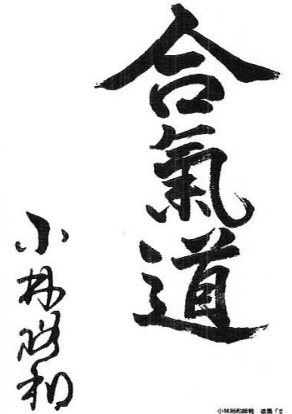 合氣道
小林裕和
小林裕和師範